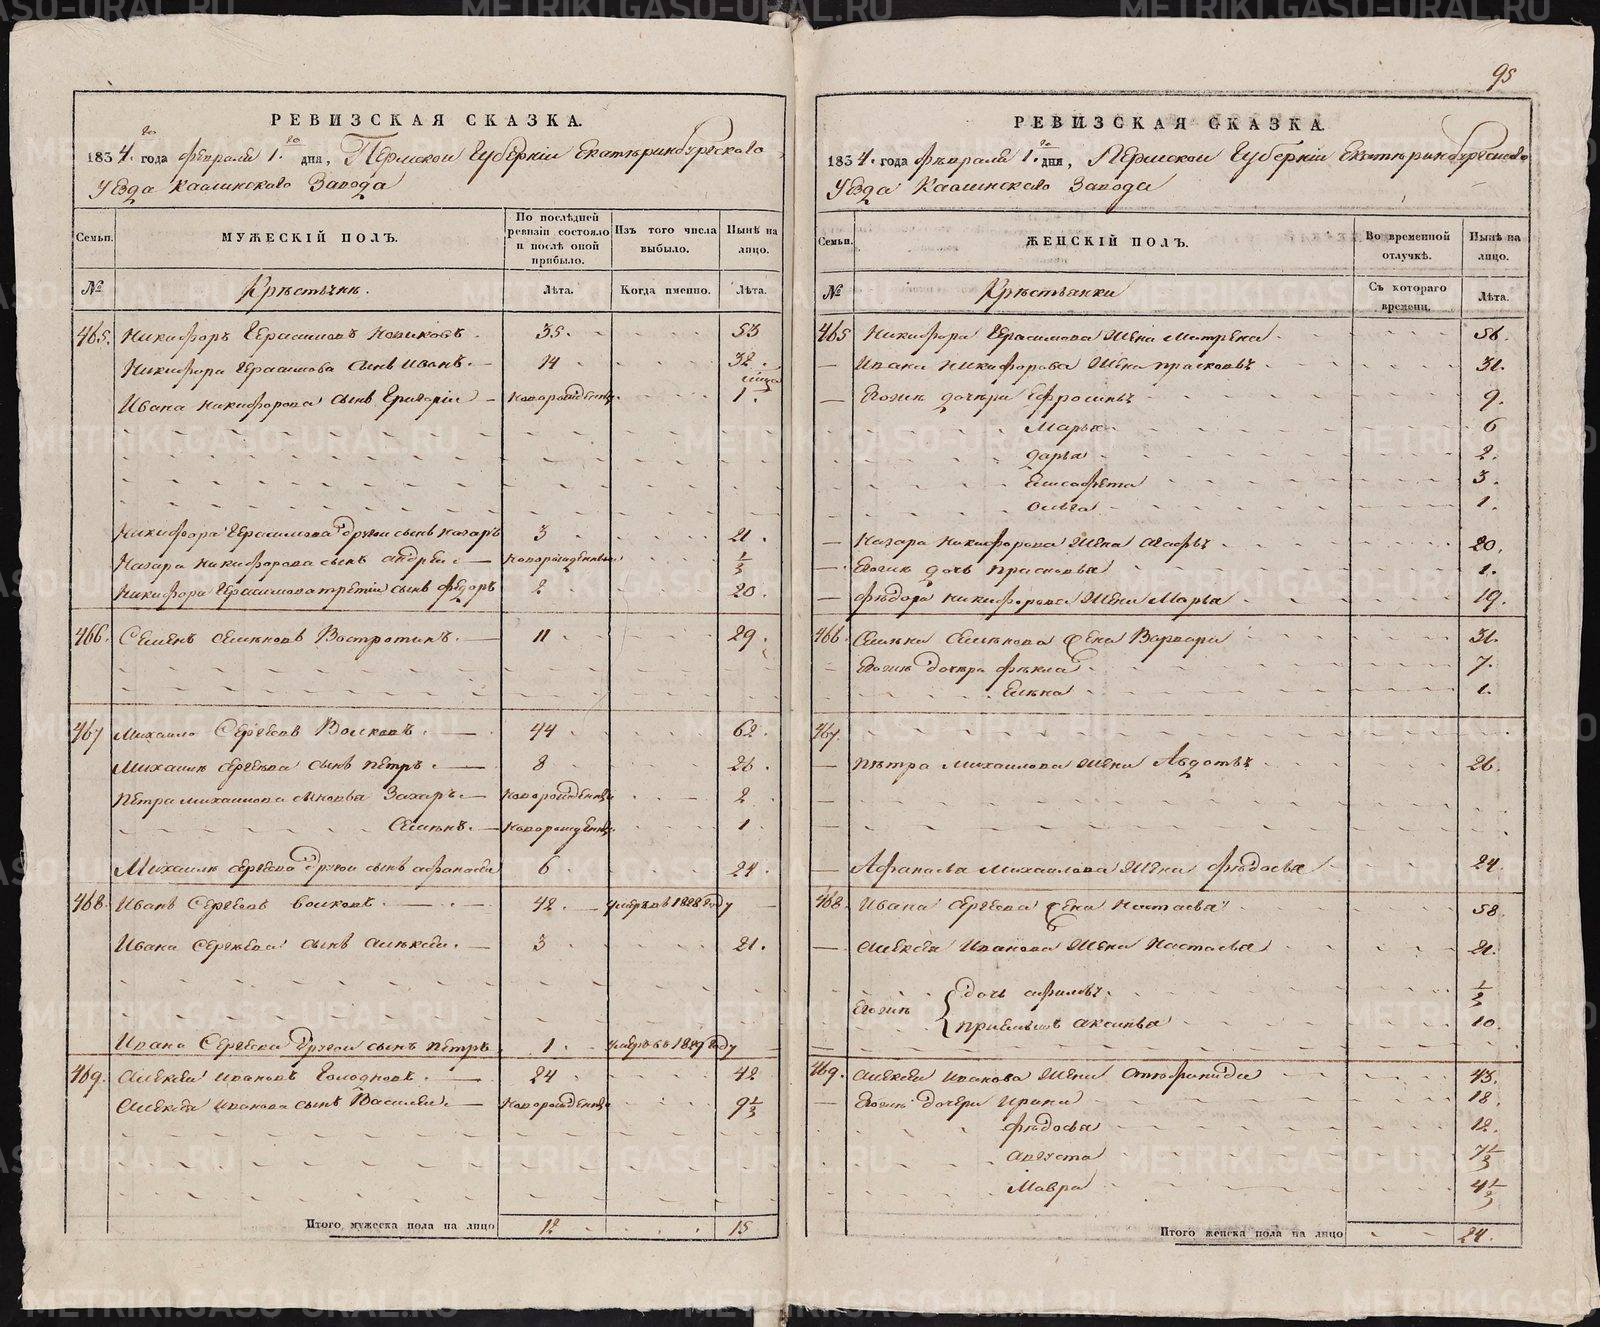 95
РЕВИЗСКАЯ СКАЗКА.
1834.го года февраля 1.го дня, Пермской Губернiи Екатеринбургскаго
Уезда Каслинскаго Завода
Семьи.
МУЖЕСКIЙ ПОЛЪ.
По последней ревизiи состояло и после оной прибыло.
Изъ того числа выбыло.
Ныне на лицо.
№
Крестьяне.
Лета.
Когда именно.
Лета.
465. Никифоръ Герасимовъ Новиковъ. 35. 53
Никифора Герасимова сынъ Иванъ. 14 32.
Ивана Никифорова сынъ Григорiй новорожденны. 1.
Никифора Герасимова другой сынъ Назаръ 3 21.
Назара Никифорова сынъ Андрей новорожденный 1/3
Никифора Герасимова третiй сынъ Федоръ 2 20.
466. Семенъ Семеновъ Востротинъ. 11 29.
467 Михайло Сергеевъ Волковъ. 44 62.
Михаила Сергеева сынъ Петръ. 8 26.
Петра Михайлова сыновья Захаръ новорожденны 2
Семенъ. новорожденны. 1.
Михаила Сергеева другой сынъ Афанасей 6 24.
468. Иванъ Сергеевъ Волковъ. 42. умеръ въ 1828 году
Ивана Сергеева сынъ Алексей. 3 21.
Ивана Сергеева другой сынъ Петръ 1. умеръ въ 1829 году
469. Алексей Ивановъ Голодновъ. 24 42
Алексея Иванова сынъ Василей. новорожденны 9 1/3
Итого мужеска пола на лицо 12 15
РЕВИЗСКАЯ СКАЗКА.
1834. года февраля 1.го дня, Пермской Губернiи Екатеринбургскаго
Уезда Каслинскаго Завода
Семьи.
ЖЕНСКIЙ ПОЛЪ.
Во временной отлучке.
Ныне на лицо.
№
Крестьянки
Съ котораго времени.
Лета.
465 Никифора Герасимова жена Матрена. 56.
Ивана Никифорова жена Прасковья 31.
Ихъ дочери Ефросинья 9.
Марья 6
Дарья 2.
Елисафета 3.
Ольга 1.
Назара Никифорова жена Агафья 20.
Ихъ дочь Прасковья 1.
Федора Никифорова жена Марья 19.
466. Семена Семенова жена Варвара 31.
Ихъ дочери Фекла 7.
Елена 1.
467.
Петра Михайлова жена Авдотья 26.
Афанасья Михайлова жена Федосья 24.
468. Ивана Сергеева жена Настасья 58
Алексея Иванова жена Настасья 21.
Ихъ дочь Афимья. 1/2
прiемышъ Аксинья 10.
469. Алексея Иванова жена 43.
Ихъ дочери Ирина 18.
Федосья 12.
Августа 7 1/2
Мавра 4 1/2
Итого женска пола на лицо 24.
METRIKI.GASO-URAL.RU